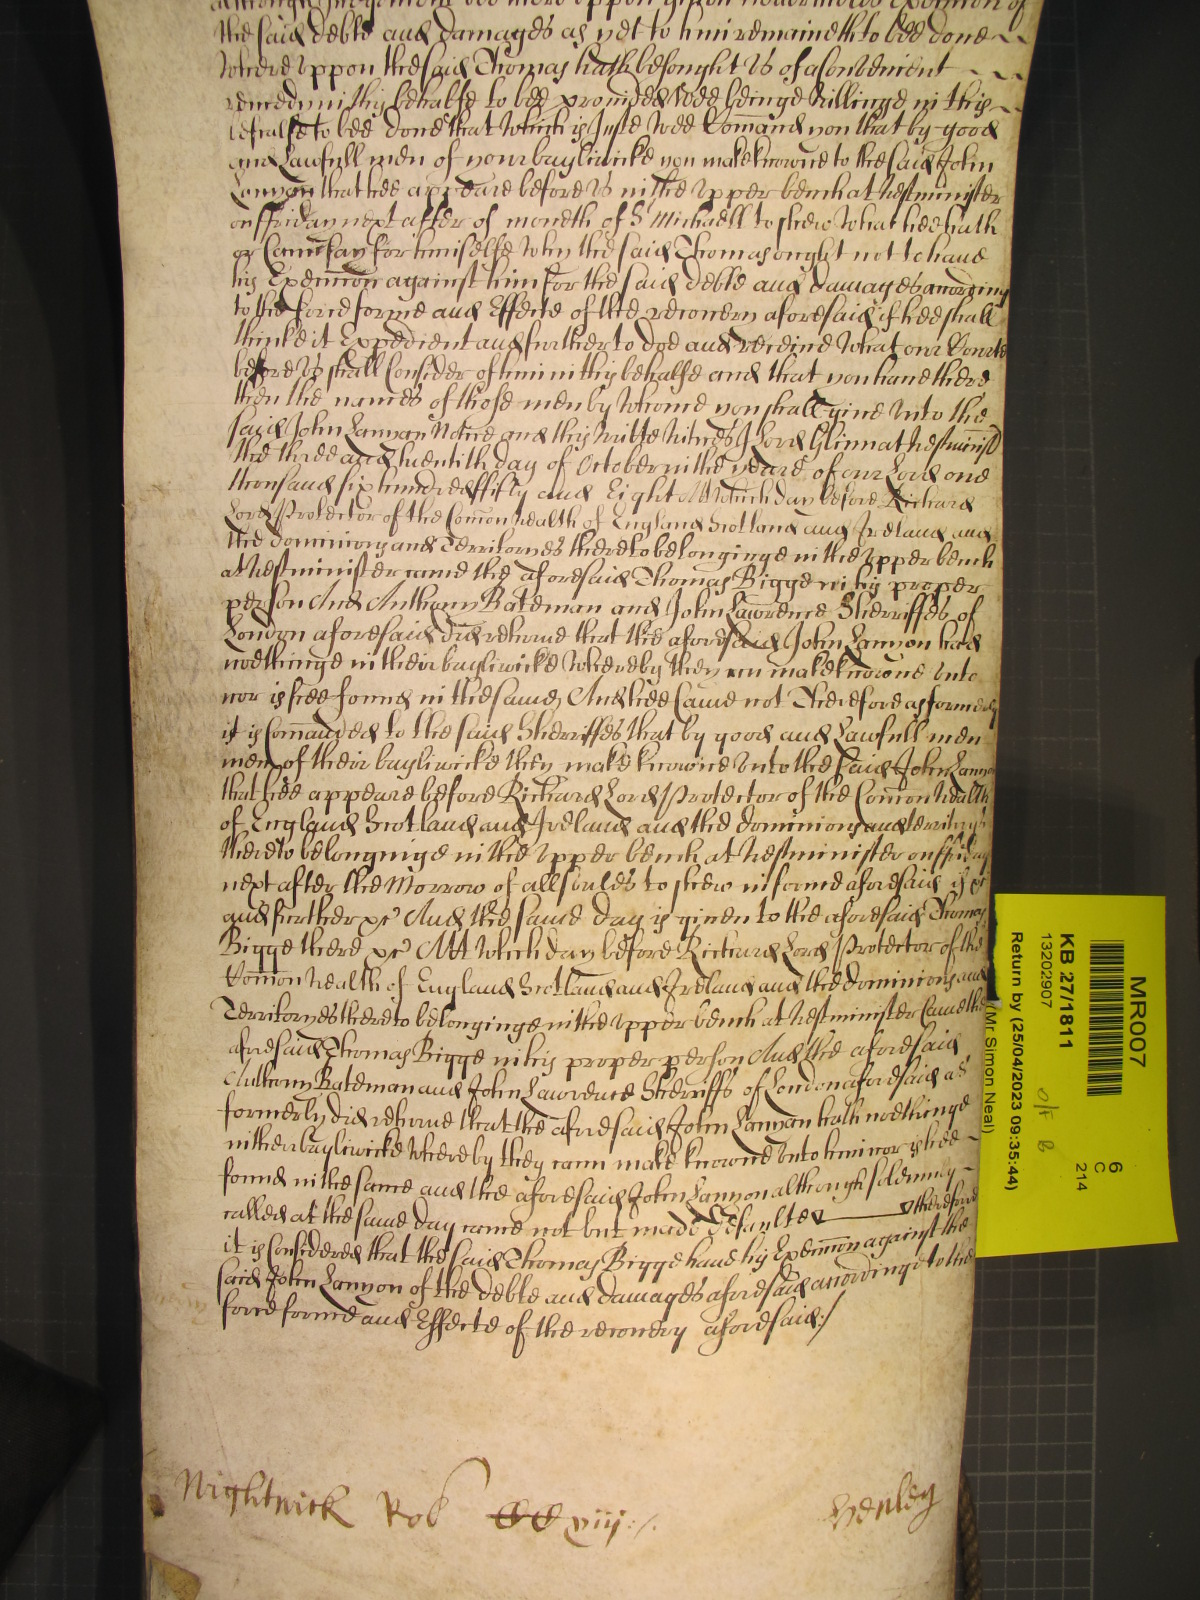 although Judgement bee there uppon given nevertheles Execucion of
the said debte and damages as yet to him remaineth to bee done
Whereuppon the said Thomas hath besought us of a convenient
remedy in this behalfe to bee provided Wee beinge willinge in this
behalfe to bee done that which is Juste Wee Comand you that by good
and Lawfull men of your bayliwicke you make knowne to the said John
Lanyon that hee appeare before us in the upper bench at Westminster
on ffriday next after of moneth of St Michaell to shew what hee hath
or Can say for himselfe why the said Thomas ought not to have
his Execucion against him for the said debte and damages accordinge
to the force forme and Effecte of the recovery aforesaid if hee shall
thinke it Expedient and further to doe and receive what our Courte
before us shall Consider of him in this behalfe and that you have there
then the names of those men by whome you shall give unto the
said John Lanyon Notice and this writte witnes J Lord Glinn at Westminster
the three and twentith day of October in the yeare of our Lord one
thousand six hundred fifty and Eight Att which day before Richard
Lord Protector of the Comonwealth of England Scotland and Ireland and
the dominions and Territoryes thereto belonginge in the upper bench
at Westminster came the aforesaid Thomas Bigge in his proper
person And Anthony Bateman and John Lawrence Sherriffes of
London aforesaid did returne that the aforesaid John Lanyon had
noethinge in their bayliwicke whereby they can make knowne unto
nor is hee found in the same And hee Came not Therefore as formerly
it is Comanded to the said Sherriffes that by good and Lawfull men
men of their bayliwicke they make knowne unto the said John Lanyon
that hee appeare before Richard Lord Protector of the Comonwealth
of England Scotland and Ireland and the dominions and territoryes
thereto belonginge in the upper bench at Westminster on ffriday
next after the Morrow of all soules to shew in forme aforesaid if &c
and further &c And the same day is given to the aforesaid Thomas
Bigge there &c Att which day before Richard Lord Protector of the
Comonwealth of England Scotland and Ireland and the dominions and
Territoryes thereto belonginge in the upper bench at Westminster Came the
aforesaid Thomas Bigge in his proper person And the aforesaid
Anthony Bateman and John Lawrence Sherriffs of London aforesaid as
formerly did returne that the aforesaid John Lanyon hath noethinge
in their bayliwicke whereby they cann make knowne unto him nor is hee
found in the same and the aforesaid John Lanyon although solemnly
called at the same day came not but made defaulte therefore
it is Considered that the said Thomas Bigge have his Execucion against the
said John Lanyon of the debte and damages aforesaid accordinge to the
force forme and Effecte of the recovery aforesaid:/
Nightwick Ro viij Henley
MR007
KB 27/1811
13202907
Return by (25/04/2023 09:35:44)
(Mr Simon Neal)
6
C
214